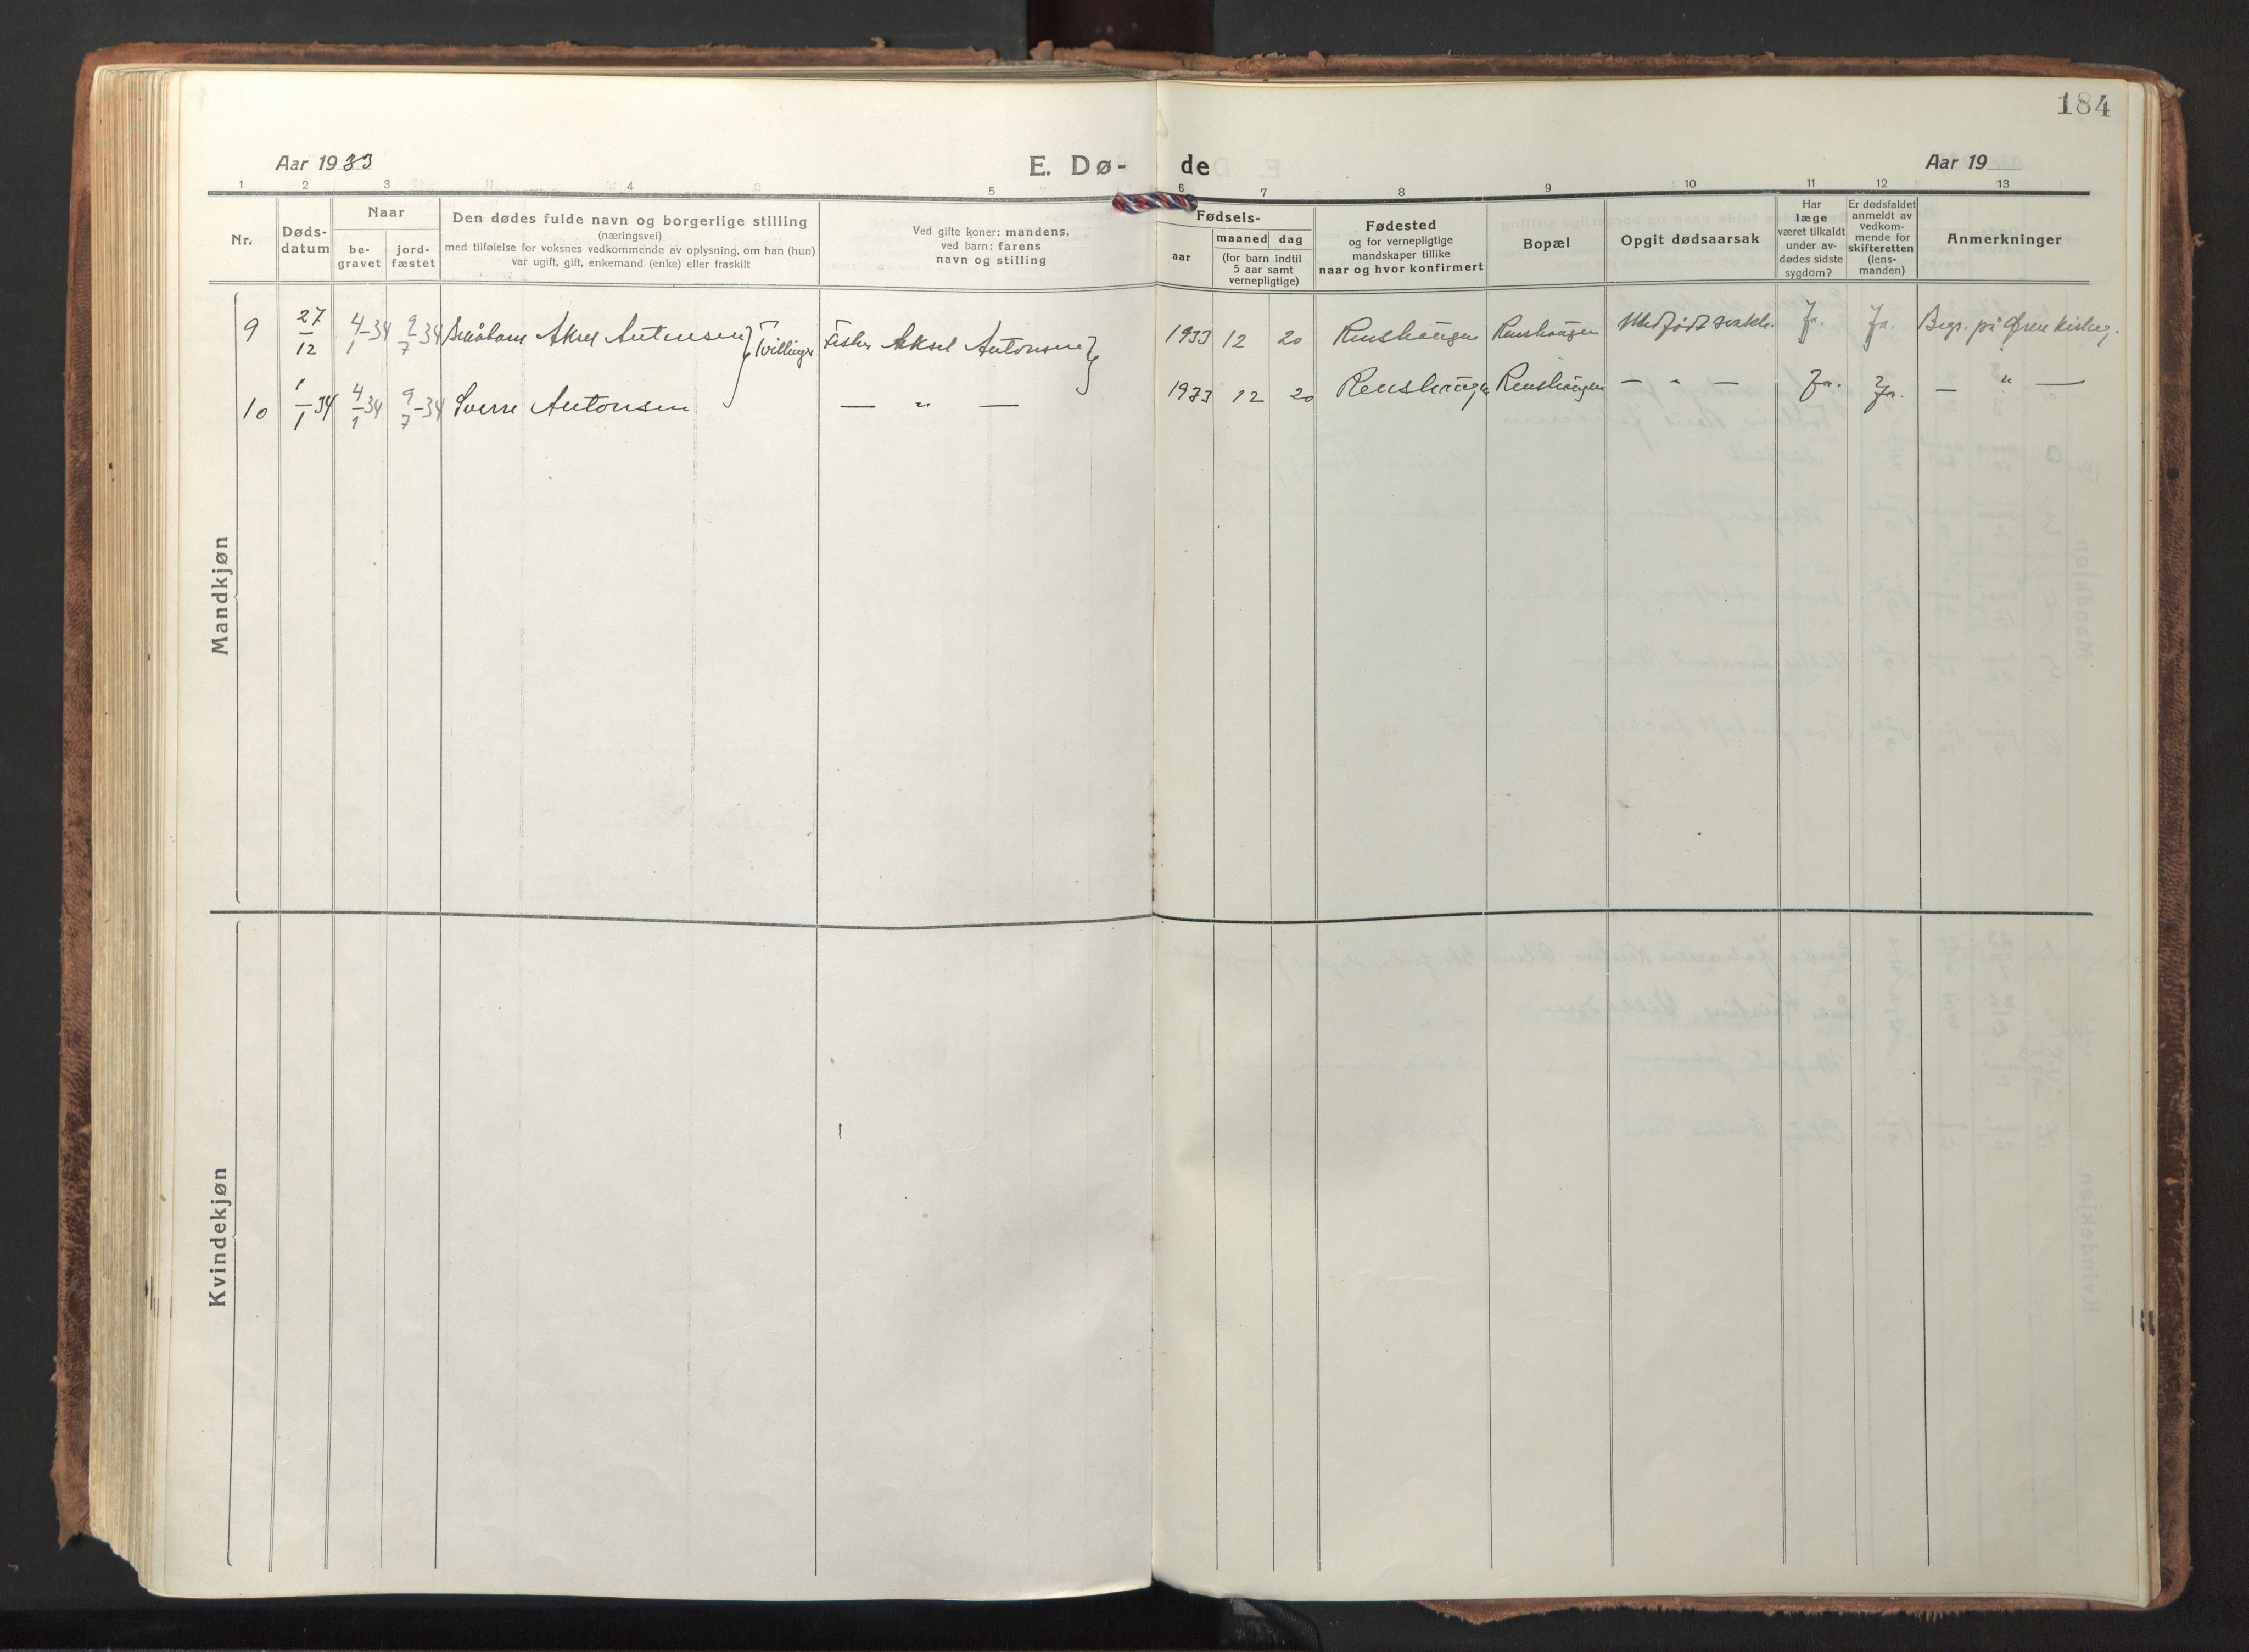 184
Aar 1933
E. Dø-
de
Aar 19
1 2 3 4 5 6 7 8 9 10 11 12 13
Nr.
Døds-
datum
Naar
be-
gravet
jord-
fæstet
Den dødes fulde navn og borgerlige stilling
(næringsvei)
med tilføielse for voksnes vedkommende av oplysning, om han (hun)
var ugift, gift, enkemand (enke) eller fraskilt
Ved gifte koner: mandens,
ved barn: farens
navn og stilling
Fødsels-
aar
maaned dag
(for barn indtil
5 aar samt
vernepligtige)
Fødested
og for vernepligtige
mandskaper tillike
naar og hvor konfirmert
Bopæl
Opgit dødsaarsak
Har
læge
været tilkaldt
under av-
dødes sidste
sygdom?
Er dødsfaldet
anmeldt av
vedkom-
mende for
skifteretten
(lens-
manden)
Anmerkninger
Mandkjøn
9 27/12 4/1-34 9/7-34 Småbarn Aksel Antonsen } Tvillinger Fisker Aksel Antonsen } 1933 12 20 Renshaugen Renshaugen Medfødt svakh. Ja. Ja. Begr. på Øren kirkeg.
10 1/1 34 4/1-34 9/7-34 Sverre Antonsen — " — 1933 12 20 Renshaugen Renshaugen — " — Ja. Ja. — " —
Kvindekjøn